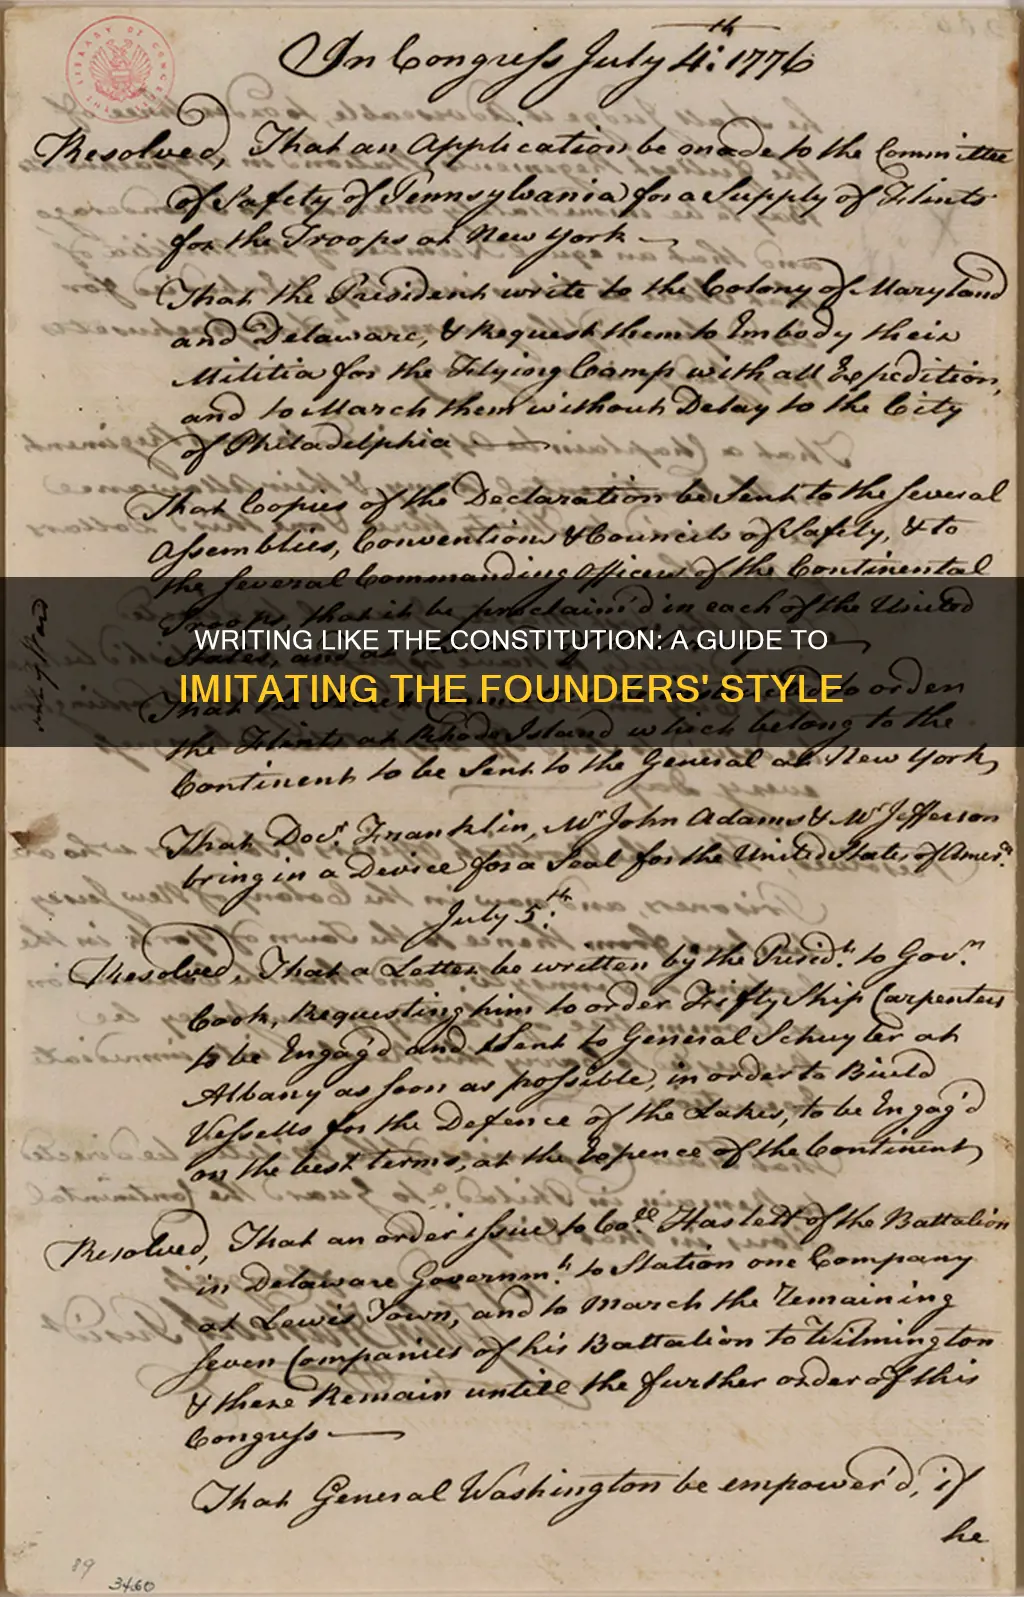 LIBRARY OF CONGRESS
In Congress July 4th: 1776
Resolved, That an Application be made to the Committee
of Safety of Pennsylvania for a Supply of Flints
for the Troops at New York
That the President write to the Colony of Maryland
and Delaware, & Request them to Embody their
Militia for the Flying Camp with all Expedition,
and to March them without Delay to the City
of Philadelphia
That Copies of the Declaration be Sent to the Several
Assemblies, Conventions & Councils of Safety, & to
the Several Commanding Officers of the Continental
Troops, that it be proclaim'd in each of the United
WRITING LIKE THE CONSTITUTION: A GUIDE TO
States, and at
IMITATING THE FOUNDERS' STYLE
That the to order
the Flints at Rhode Island which belong to the
Continent to be Sent to the General at New York,
That Docr. Franklin, Mr John Adams & Mr Jefferson
bring in a Device for a Seal for the United States of Amer.ca
July 5th:
Resolved, That a Letter be written by the Presidt. to Govr.
Cook, Requesting him to order Fifty Ship Carpenters
to be Engag'd and Sent to General Schuyler at
Albany as soon as possible, in order to Build
Vessells for the Defence of the Lakes, to be Engag'd
on the best terms, at the Expence of the Continent,
Resolved, That an order issue to Coll. Haslett of the Battalion
in Delaware Governmt. to Station one Company
at Lewis Town, and to March the remaining
Seven Companies of his Battalion to Wilmington
& there Remain untill the further order of this
Congress
That General Washington be empower'd, if
he
89
3460